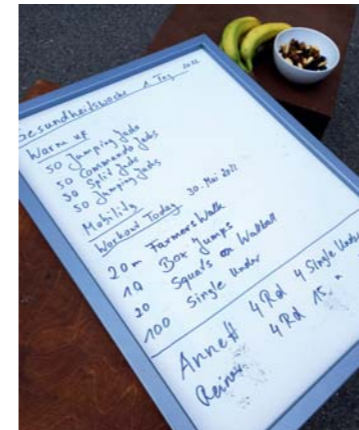 Gesundheitswoche 1 Tag 2022
Warm up
50 Jumping Jacks
50 Commando Jacks
50 Split Jacks
50 Jumping Jacks
Mobility
Workout Today 30. Mai
20m Farmers Walk
10 Box Jumps
20 Squats on Wallball
100 Single Under
Annett 4 Rd 4 Single Under
Reiner 4 Rd 15